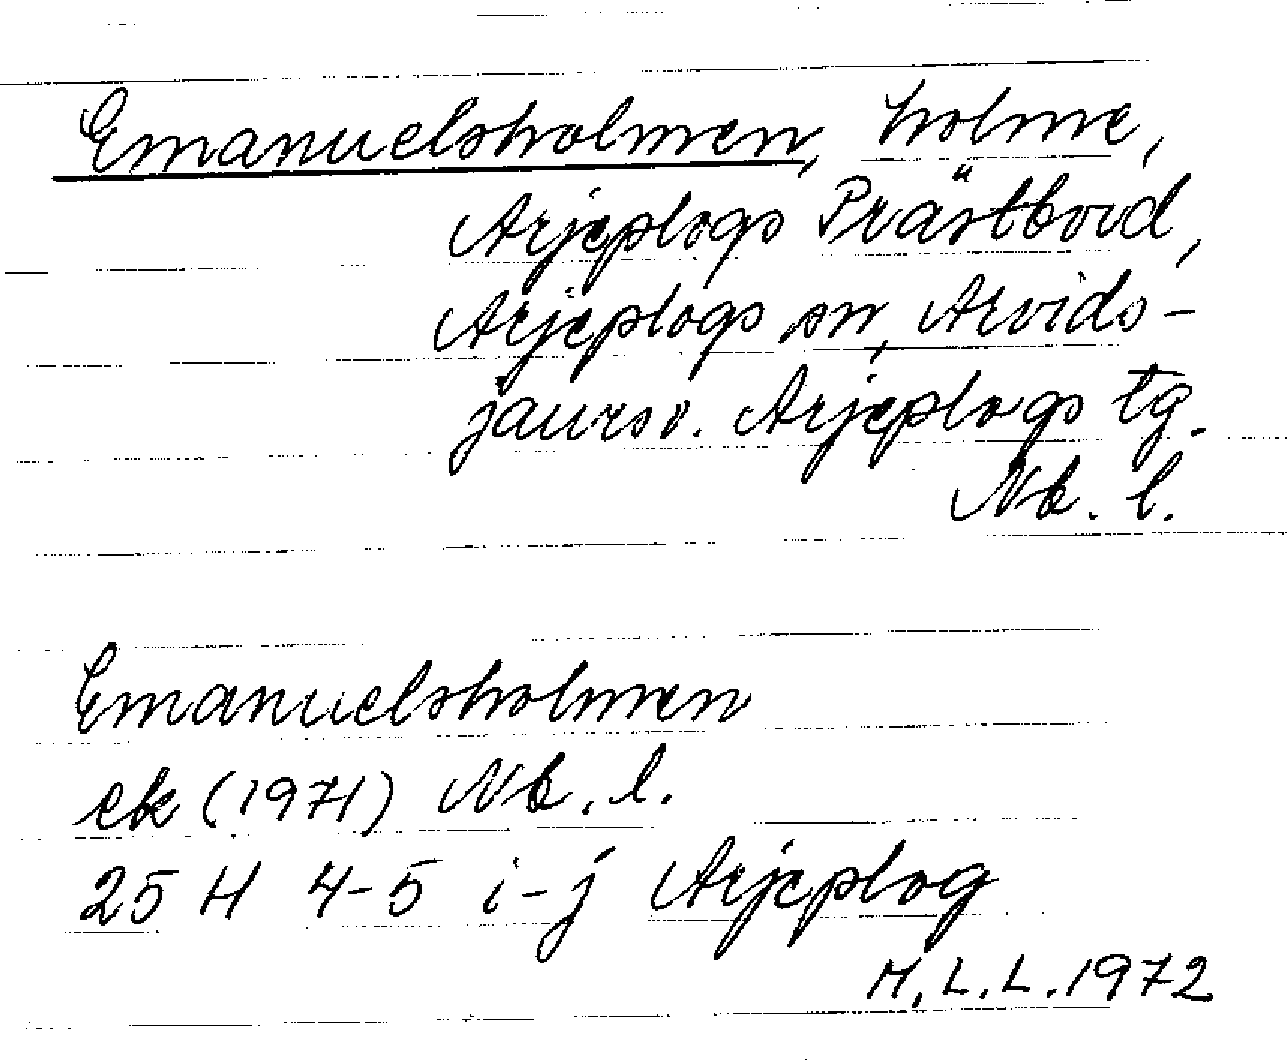 Emanuelsholmen, holme,
Arjeplogs Prästbord,
Arjeplogs sn, Arvids-
jaurs o. Arjeplogs tg.
Nb. l.
Emanuelsholmen
ek (1971) Nb. l.
25 H 4-5 i-j Arjeplog
M.L.L. 1972